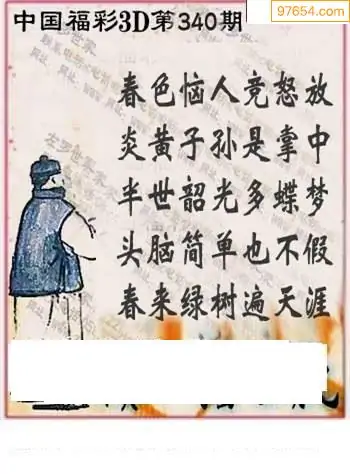 中国福彩3D第340期
97654.com
春色恼人竞怒放
炎黄子孙是掌中
半世韶光多蝶梦
头脑简单也不假
春来绿树遍天涯